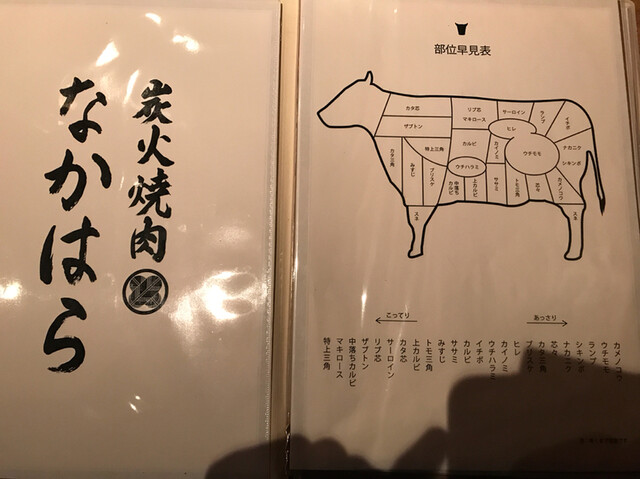 炭火焼肉
なかはら
部位早見表
カタ芯
ザブトン
リブ芯
マキロース
サーロイン
ランプ
イチボ
ヒレ
カタ三角
みすじ
特上三角
ブリスケ
カルビ
カイノミ
ウチモモ
ナカニク
シキンボ
ウチハラミ
中落ち
カルビ
上カルビ
ササミ
トモ三角
芯々
カメノコウ
スネ
スネ
こってり
あっさり
カメノコウ
ウチモモ
ランプ
シキンボ
ナカニク
芯々
カタ三角
ブリスケ
ヒレ
カイノミ
ウチハラミ
イチボ
カルビ
ササミ
みすじ
トモ三角
上カルビ
カタ芯
サーロイン
リブ芯
ザブトン
中落ちカルビ
マキロース
特上三角